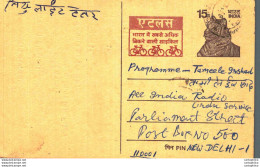 न्यू लाईट टेलर
एटलस
भारत में सबसे अधिक
बिकने वाली साइकिल
15
भारत
INDIA
Programme - Tameele Irshad
All India Radio
Urdu Service
Parliament Street
Post Box No 500
पिन PIN NEW DELHI-1
110001